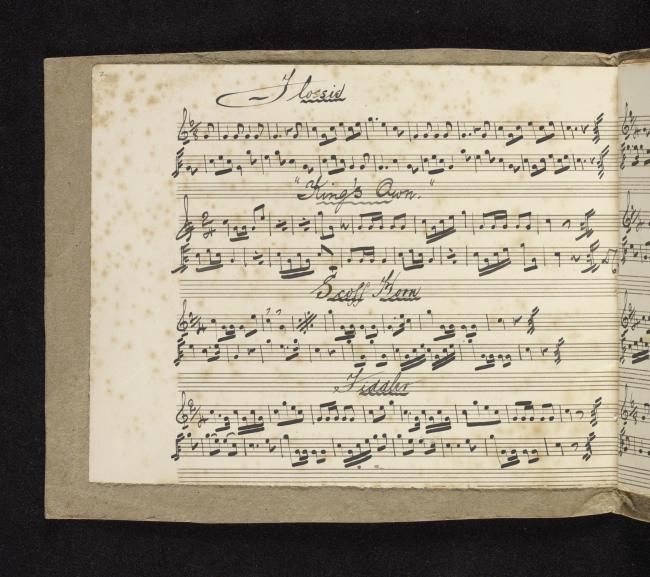 Flossie
"King's Own."
Scoff Horn
Fiddler